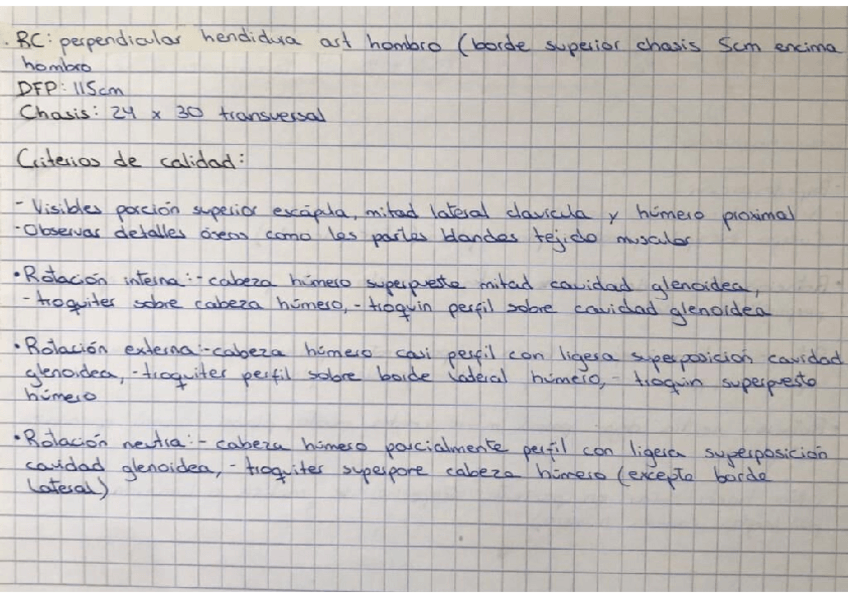 . RC: perpendicular hendidura art hombro (borde superior chasis 5cm encima
hombro
DFP: 115cm
Chasis: 24 x 30 transversal
Criterios de calidad:
- Visibles porción superior escápula, mitad lateral clavícula y húmero proximal
- Observar detalles óseos como las partes blandas tejido muscular
• Rotación interna: - cabeza húmero superpuesta mitad cavidad glenoidea,
- troquiter sobre cabeza húmero, - troquin perfil sobre cavidad glenoidea
• Rotación externa: - cabeza húmero casi perfil con ligera superposición cavidad
glenoidea, - troquiter perfil sobre borde lateral húmero, - troquin superpuesto
húmero
• Rotación neutra: - cabeza húmero parcialmente perfil con ligera superposición
cavidad glenoidea, - troquiter superpone cabeza húmero (excepto borde
lateral)